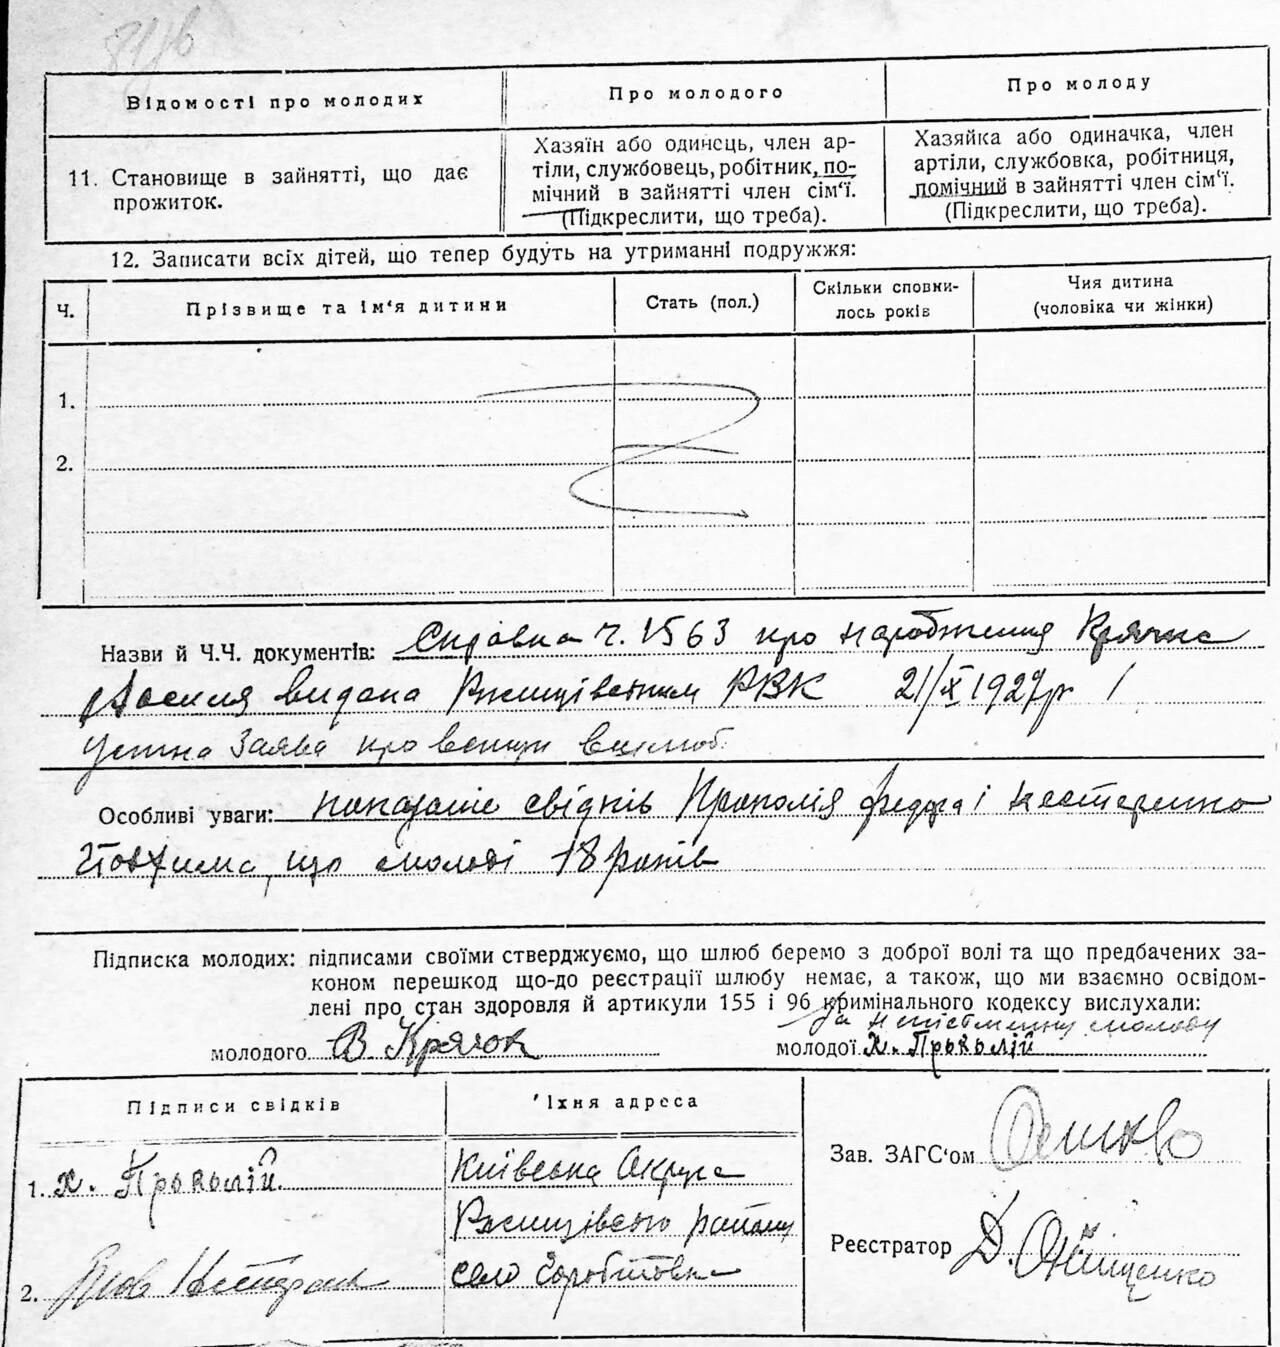 Відомості про молодих
Про молодого
Про молоду
11. Становище в зайнятті, що дає
прожиток.
Хазяїн або одинець, член ар-
тіли, службовець, робітник, по-
мічний в зайнятті член сім‘ї.
(Підкреслити, що треба).
Хазяйка або одиначка, член
артіли, службовка, робітниця,
помічний в зайнятті член сім‘ї.
(Підкреслити, що треба).
12. Записати всіх дітей, що тепер будуть на утриманні подружжя:
Ч.
Прізвище та ім‘я дитини
Стать (пол.)
Скільки сповни-
лось років
Чия дитина
(чоловіка чи жінки)
1.
2.
Назви й Ч.Ч. документів: Справка ч. 1563 про народження Крячка
Василя видана РВК 21/X 1927р
Устна Заява про
Особливі уваги: свідків Прокопія Федора і Нестеренко
що молоді 18 років
Підписка молодих: підписами своїми стверджуємо, що шлюб беремо з доброї волі та що предбачених за-
коном перешкод що-до реєстрації шлюбу немає, а також, що ми взаємно освідом-
лені про стан здоровля й артикули 155 і 96 кримінального кодексу вислухали:
за неписьменну молоду
молодого В. Крячок
молодої Х. Прокопій
Підписи свідків
‘Їхня адреса
1. Х. Прокопій
2.
Київська Округа
району
село
Зав. ЗАГС‘ом
Реєстратор Д. Оніщенко